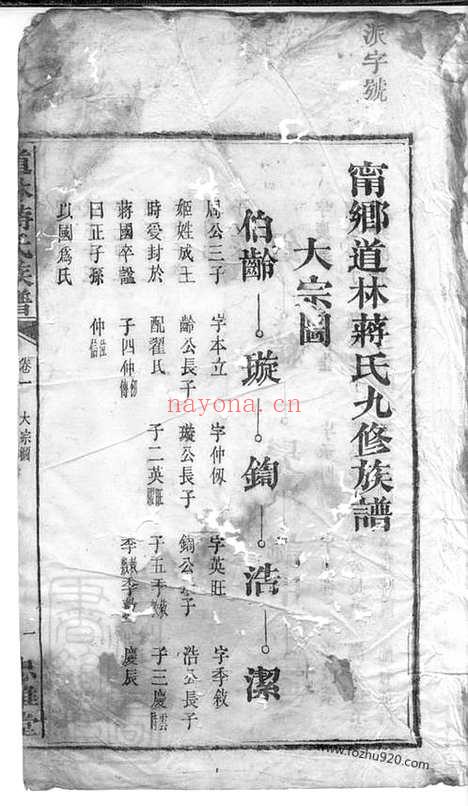 派字號
甯鄉道林蔣氏九修族譜
大宗圖
伯齡 璇 鍧 浩 潔
周公三子
姬姓成王
時爰封於
蔣國卒諡
曰正子孫
以國爲氏
字本立
齡公長子
配翟氏
子四仲
仲
字仲仭
璇公長子
子二英
字英旺
鍧公子
子五季
季
字季敘
浩公長子
子三慶
慶辰
道林蔣氏族譜
卷一
大宗圖
一
nayona.cn
www.fozhu920.com